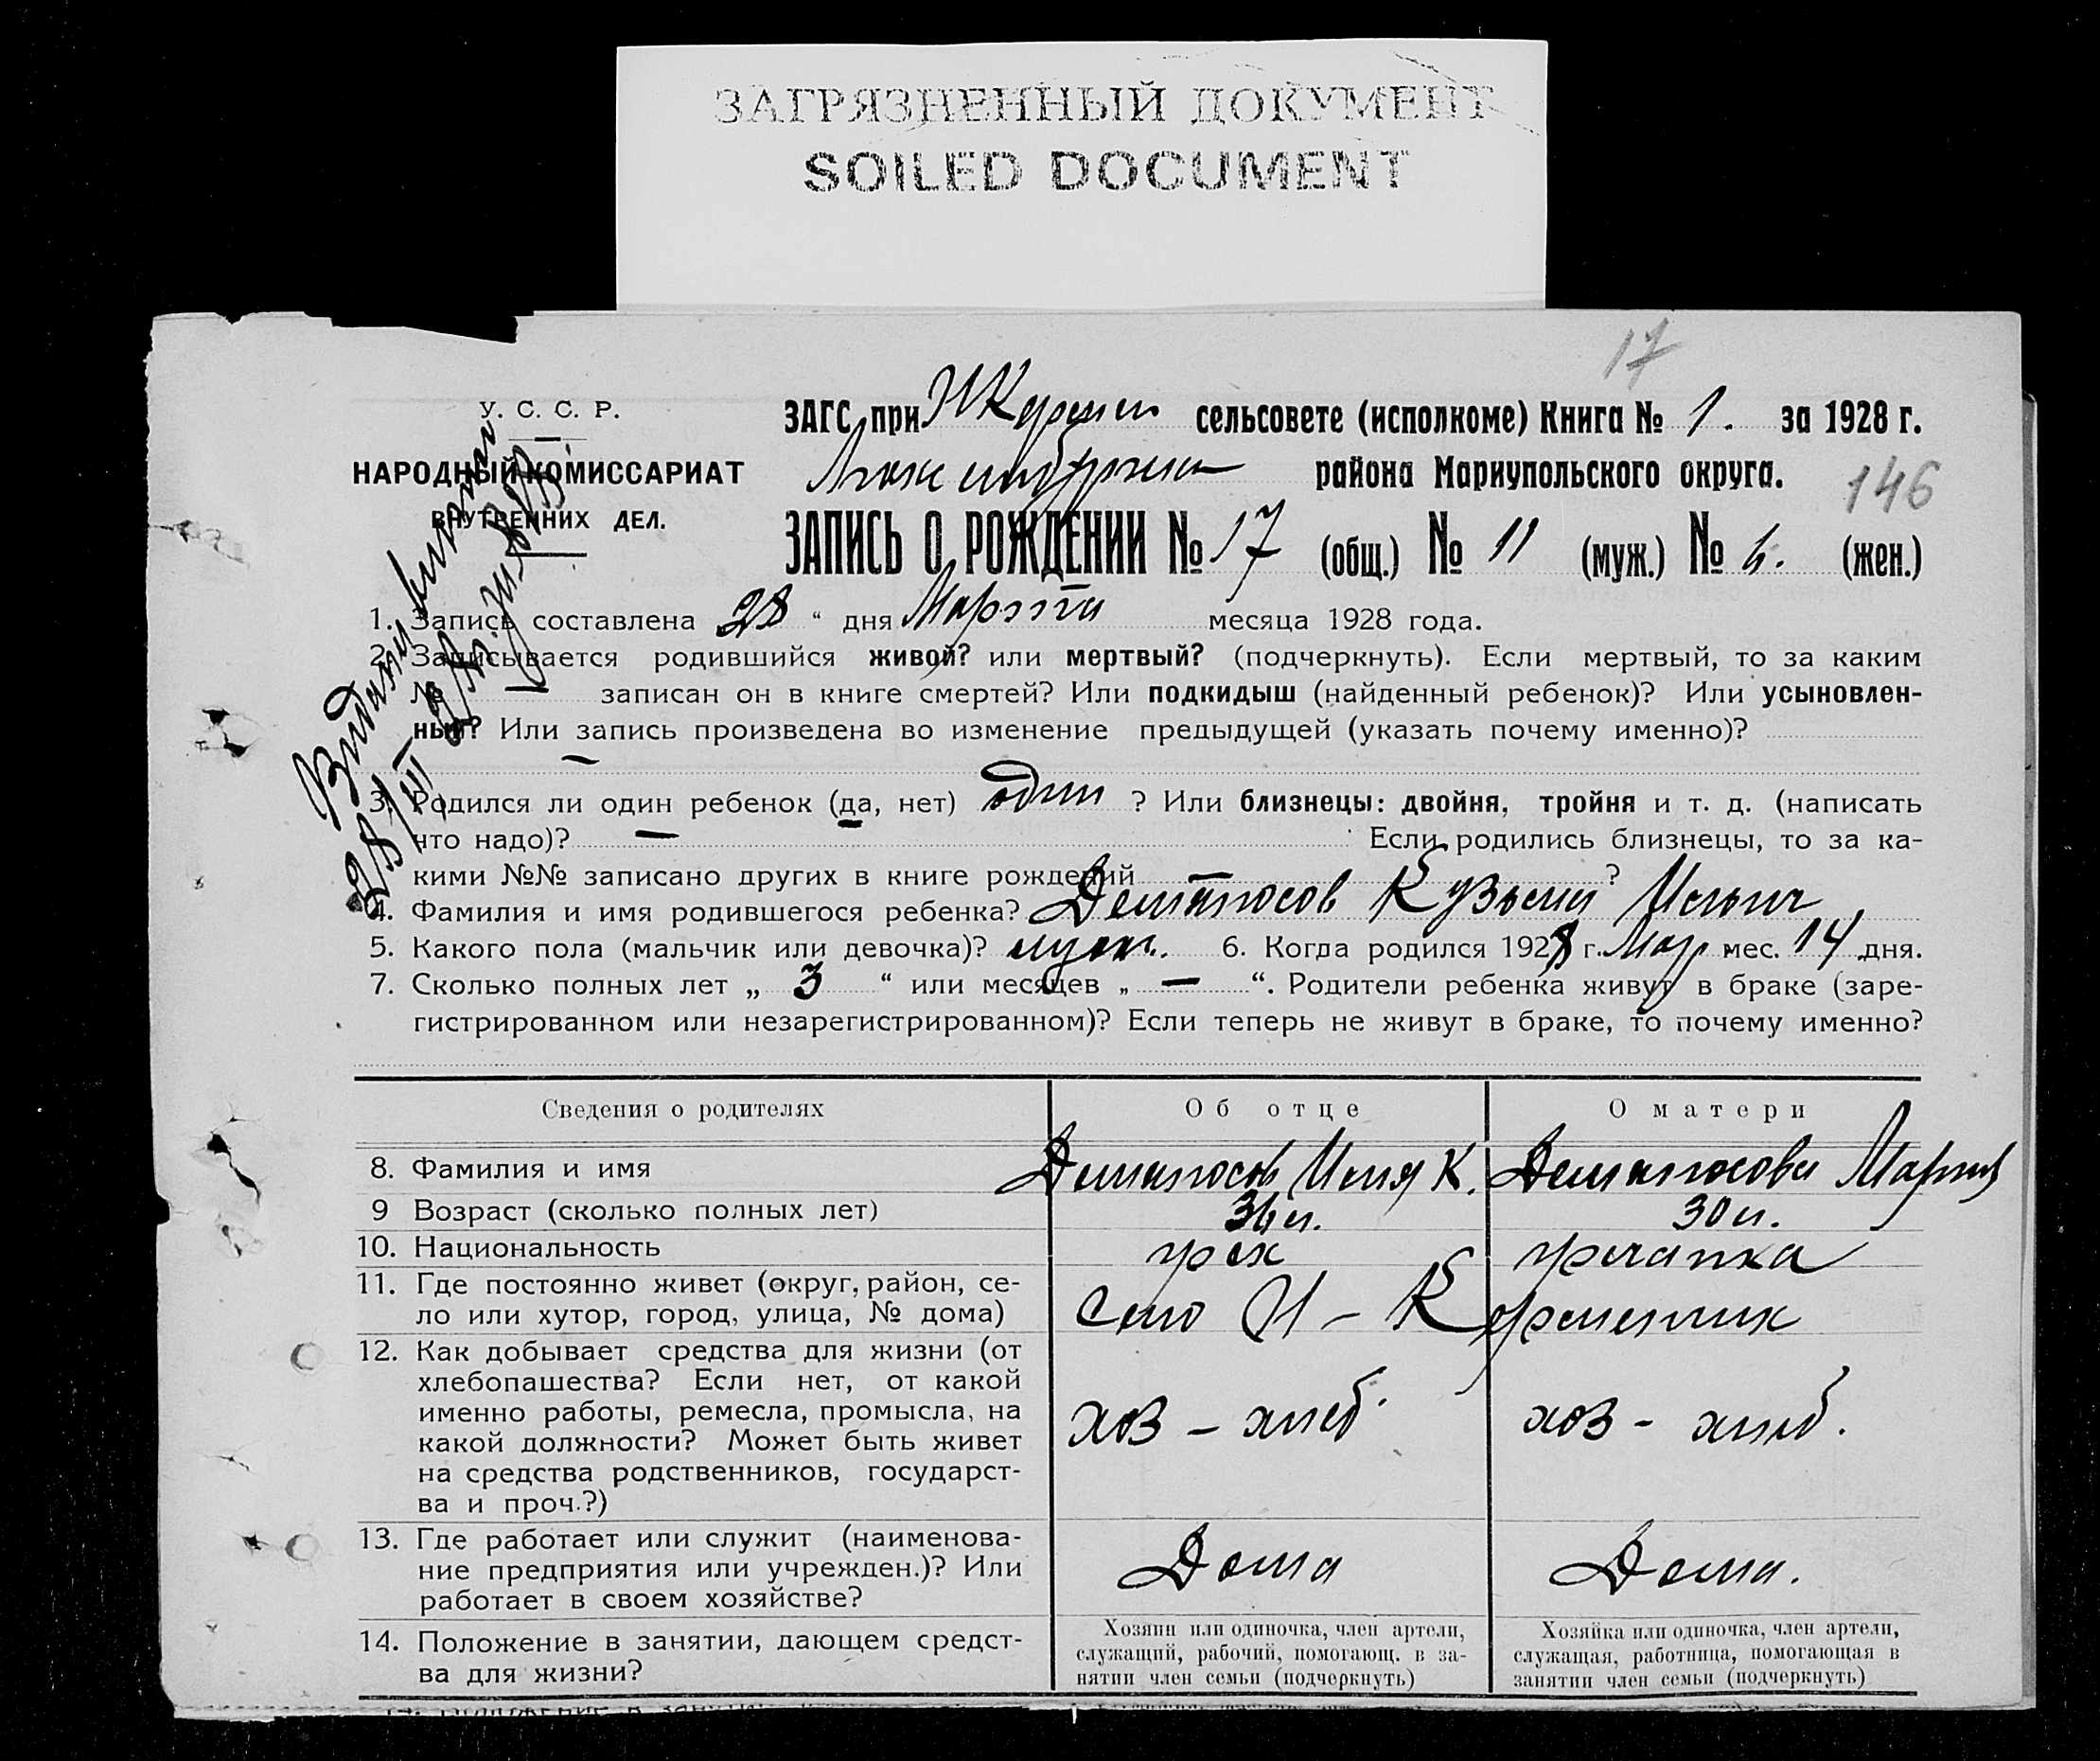 ЗАГРЯЗНЕННЫЙ ДОКУМЕНТ
SOILED DOCUMENT
17
У. С. С. Р.
НАРОДНЫЙ КОМИССАРИАТ
ВНУТРЕННИХ ДЕЛ.
ЗАГС при сельсовете (исполкоме) Книга № 1. за 1928 г.
района Мариупольского округа.
146
ЗАПИСЬ О РОЖДЕНИИ № 17 (общ.) № 11 (муж.) № 6. (жен.)
1. Запись составлена 28 “ дня Марта месяца 1928 года.
2. Записывается родившийся живой? или мертвый? (подчеркнуть). Если мертвый, то за каким
№ — записан он в книге смертей? Или подкидыш (найденный ребенок)? Или усыновлен-
ный? Или запись произведена во изменение предыдущей (указать почему именно)?
—
3. Родился ли один ребенок (да, нет) один ? Или близнецы: двойня, тройня и т. д. (написать
что надо)? — Если родились близнецы, то за ка-
кими №№ записано других в книге рождений — ?
4. Фамилия и имя родившегося ребенка? Кузьма Ильич
5. Какого пола (мальчик или девочка)? муж. 6. Когда родился 1928 г. Мар мес. 14 дня.
7. Сколько полных лет „ 3 “ или месяцев „ — “. Родители ребенка живут в браке (заре-
гистрированном или незарегистрированном)? Если теперь не живут в браке, то почему именно?
Сведения о родителях
Об отце
О матери
8. Фамилия и имя
Илья К.
Мария
9 Возраст (сколько полных лет)
36 л.
30 л.
10. Национальность
грек
гречанка
11. Где постоянно живет (округ, район, се-
ло или хутор, город, улица, № дома)
Село Н-Кременчик
12. Как добывает средства для жизни (от
хлебопашества? Если нет, от какой
именно работы, ремесла, промысла, на
какой должности? Может быть живет
на средства родственников, государст-
ва и проч.?)
хоз - хлеб.
хоз - хлеб.
13. Где работает или служит (наименова-
ние предприятия или учрежден.)? Или
работает в своем хозяйстве?
Дома
Дома.
14. Положение в занятии, дающем средст-
ва для жизни?
Хозяин или одиночка, член артели,
служащий, рабочий, помогающ. в за-
нятии член семьи (подчеркнуть)
Хозяйка или одиночка, член артели,
служащая, работница, помогающая в
занятии член семьи (подчеркнуть)